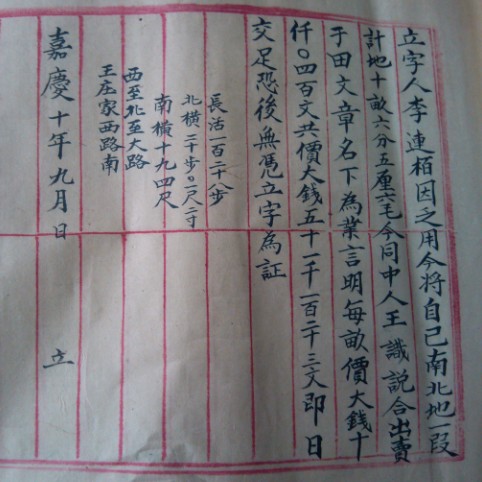 立字人李連栢因乏用今將自己南北地一段
計地十畝六分五厘六毛今同中人王識説合出賣
于田文章名下為業言明每畝價大錢十
仟〇四百文共價大钱五十一千一百二十三文即日
交足恐後無憑立字為証
長活一百二十八步
北橫二十步〇一尺二寸
南橫十九四尺
西至北至大路
王庄家西路南
嘉慶十年九月日 立